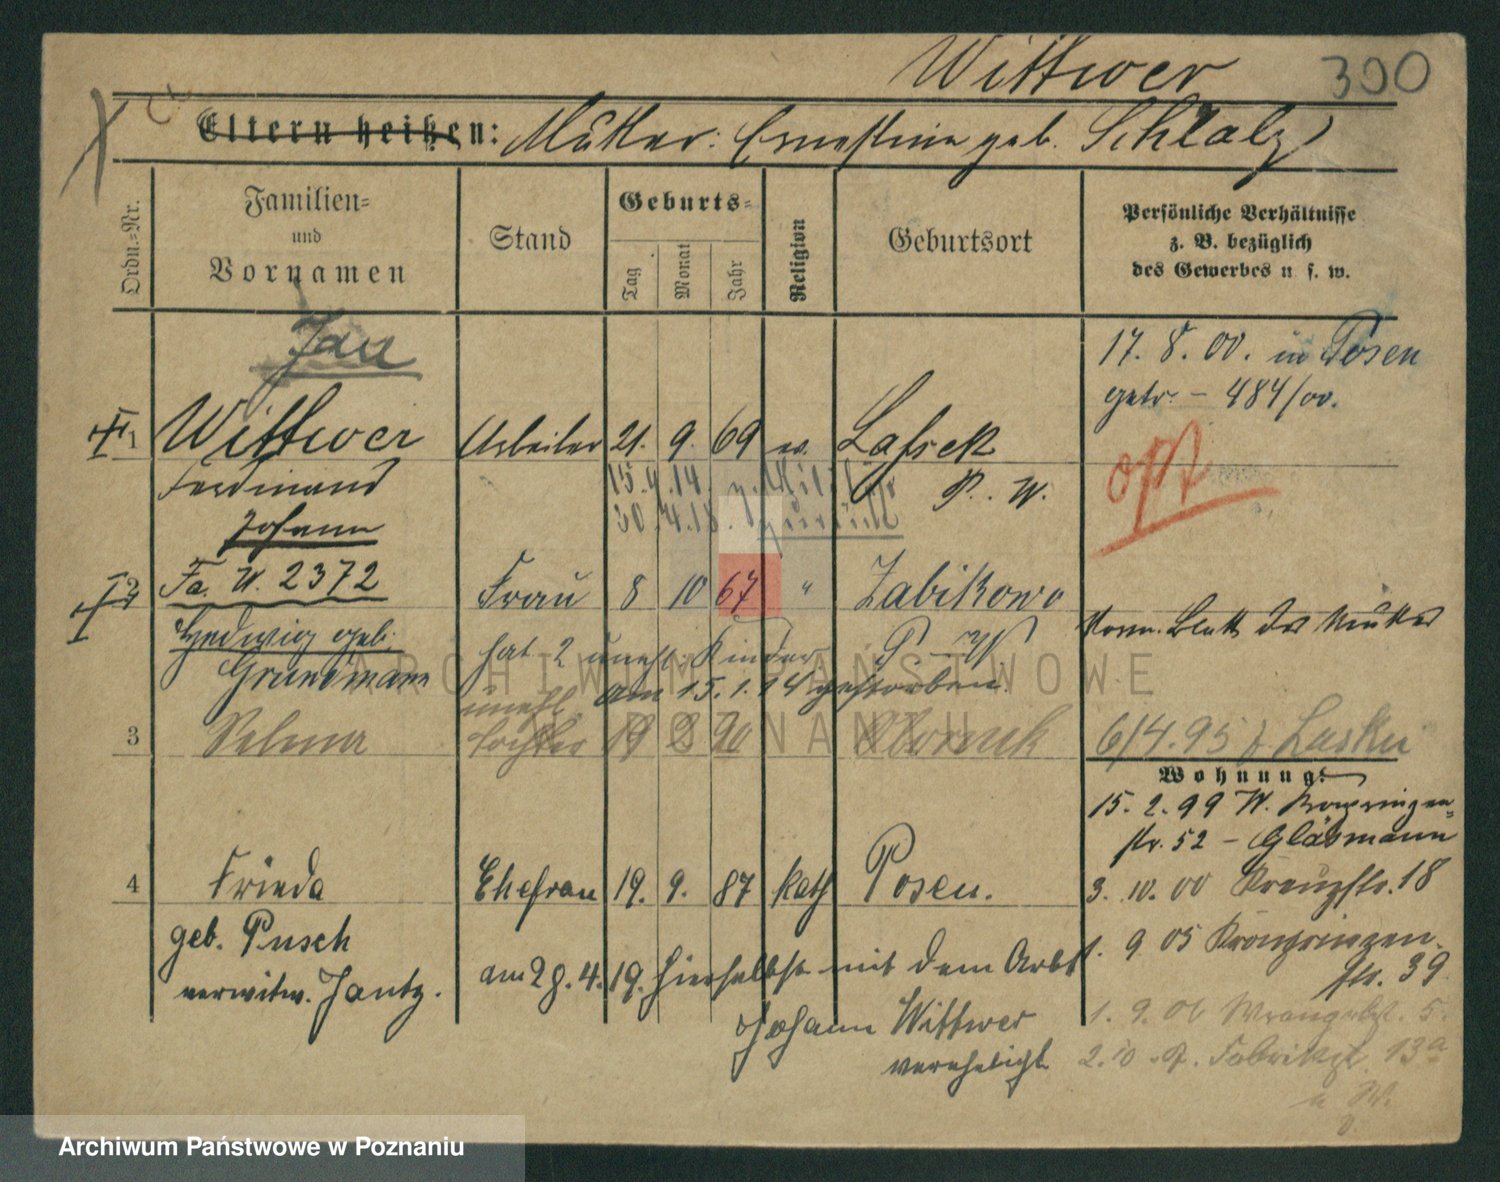 Wittwer 390
Eltern heißen: Mutter: Ernestine geb. Schlalz
Ordn.=Nr.
Familien=
und
Vornamen
Stand
Geburts=
Tag
Monat
Jahr
Religion
Geburtsort
Persönliche Verhältnisse
z. B. bezüglich
des Gewerbes u. s. w.
Jan
17. 8. 00. in Posen
getr. - 484/00.
1 Wittwer Arbeiter 21. 9. 69 ev. Lassek
Ferdinand P. W.
Johann
15. 4. 14. z. Militär
30. 4. 18. zurück
opt
Fa. U. 2372
2 Frau 8 10 67 " Zabikowo
Hedwig geb. P. W.
Grundmann
hat 2 unehl. Kinder
am 15. 1. 14 gestorben.
Blatt der Mutter
3 Selma unehl. Tochter 19 90
6/4. 95
Wohnung:
15. 2. 99 W. Kronprinzen=
str. 52 - Gläsmann
4 Frieda Ehefrau 19. 9. 87 kath Posen.
3. 10. 00 Kreuzstr. 18
geb. Pusch
verwitw. Jantz.
1. 9 05 Kronprinzen-
str. 39
am 28. 4. 19. hierselbst mit dem Arb.
Johann Wittwer
verehelicht
1. 9. 06 Wrangelst. 5.
2. 10. Fabrikst. 13a
ARCHIWUM PAŃSTWOWE
W POZNANIU
Archiwum Państwowe w Poznaniu